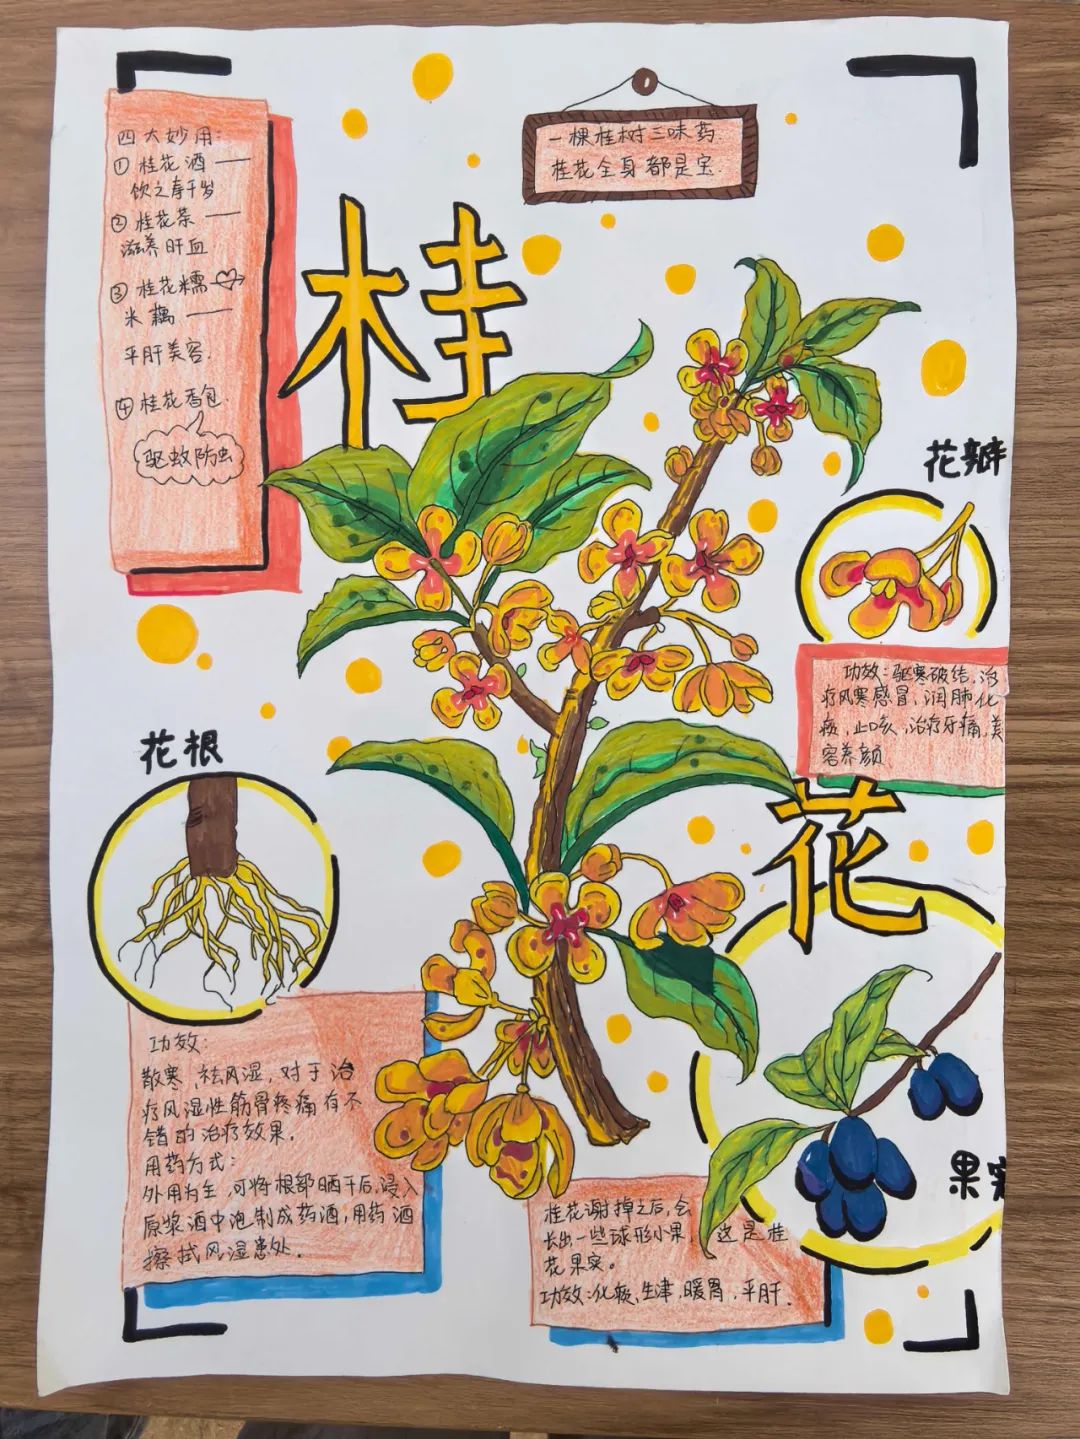 四大妙用：
① 桂花酒——
饮之寿千岁
② 桂花茶——
滋养肝血
③ 桂花糯
米藕——
平肝美容.
④ 桂花香包.
驱蚊防虫
一棵桂树三味药
桂花全身都是宝.
桂
花瓣
功效：驱寒破结，治
疗风寒感冒，润肺化
痰，止咳，治疗牙痛，美
容养颜
花
花根
功效：
散寒，祛风湿，对于治
疗风湿性筋骨疼痛有不
错的治疗效果.
用药方式：
外用为主，可将根部晒干后，浸入
原浆酒中泡制成药酒，用药酒
擦拭风湿患处.
果实
桂花谢掉之后，会
长出一些球形小果，这是桂
花果实。
功效：化痰，生津，暖胃，平肝.